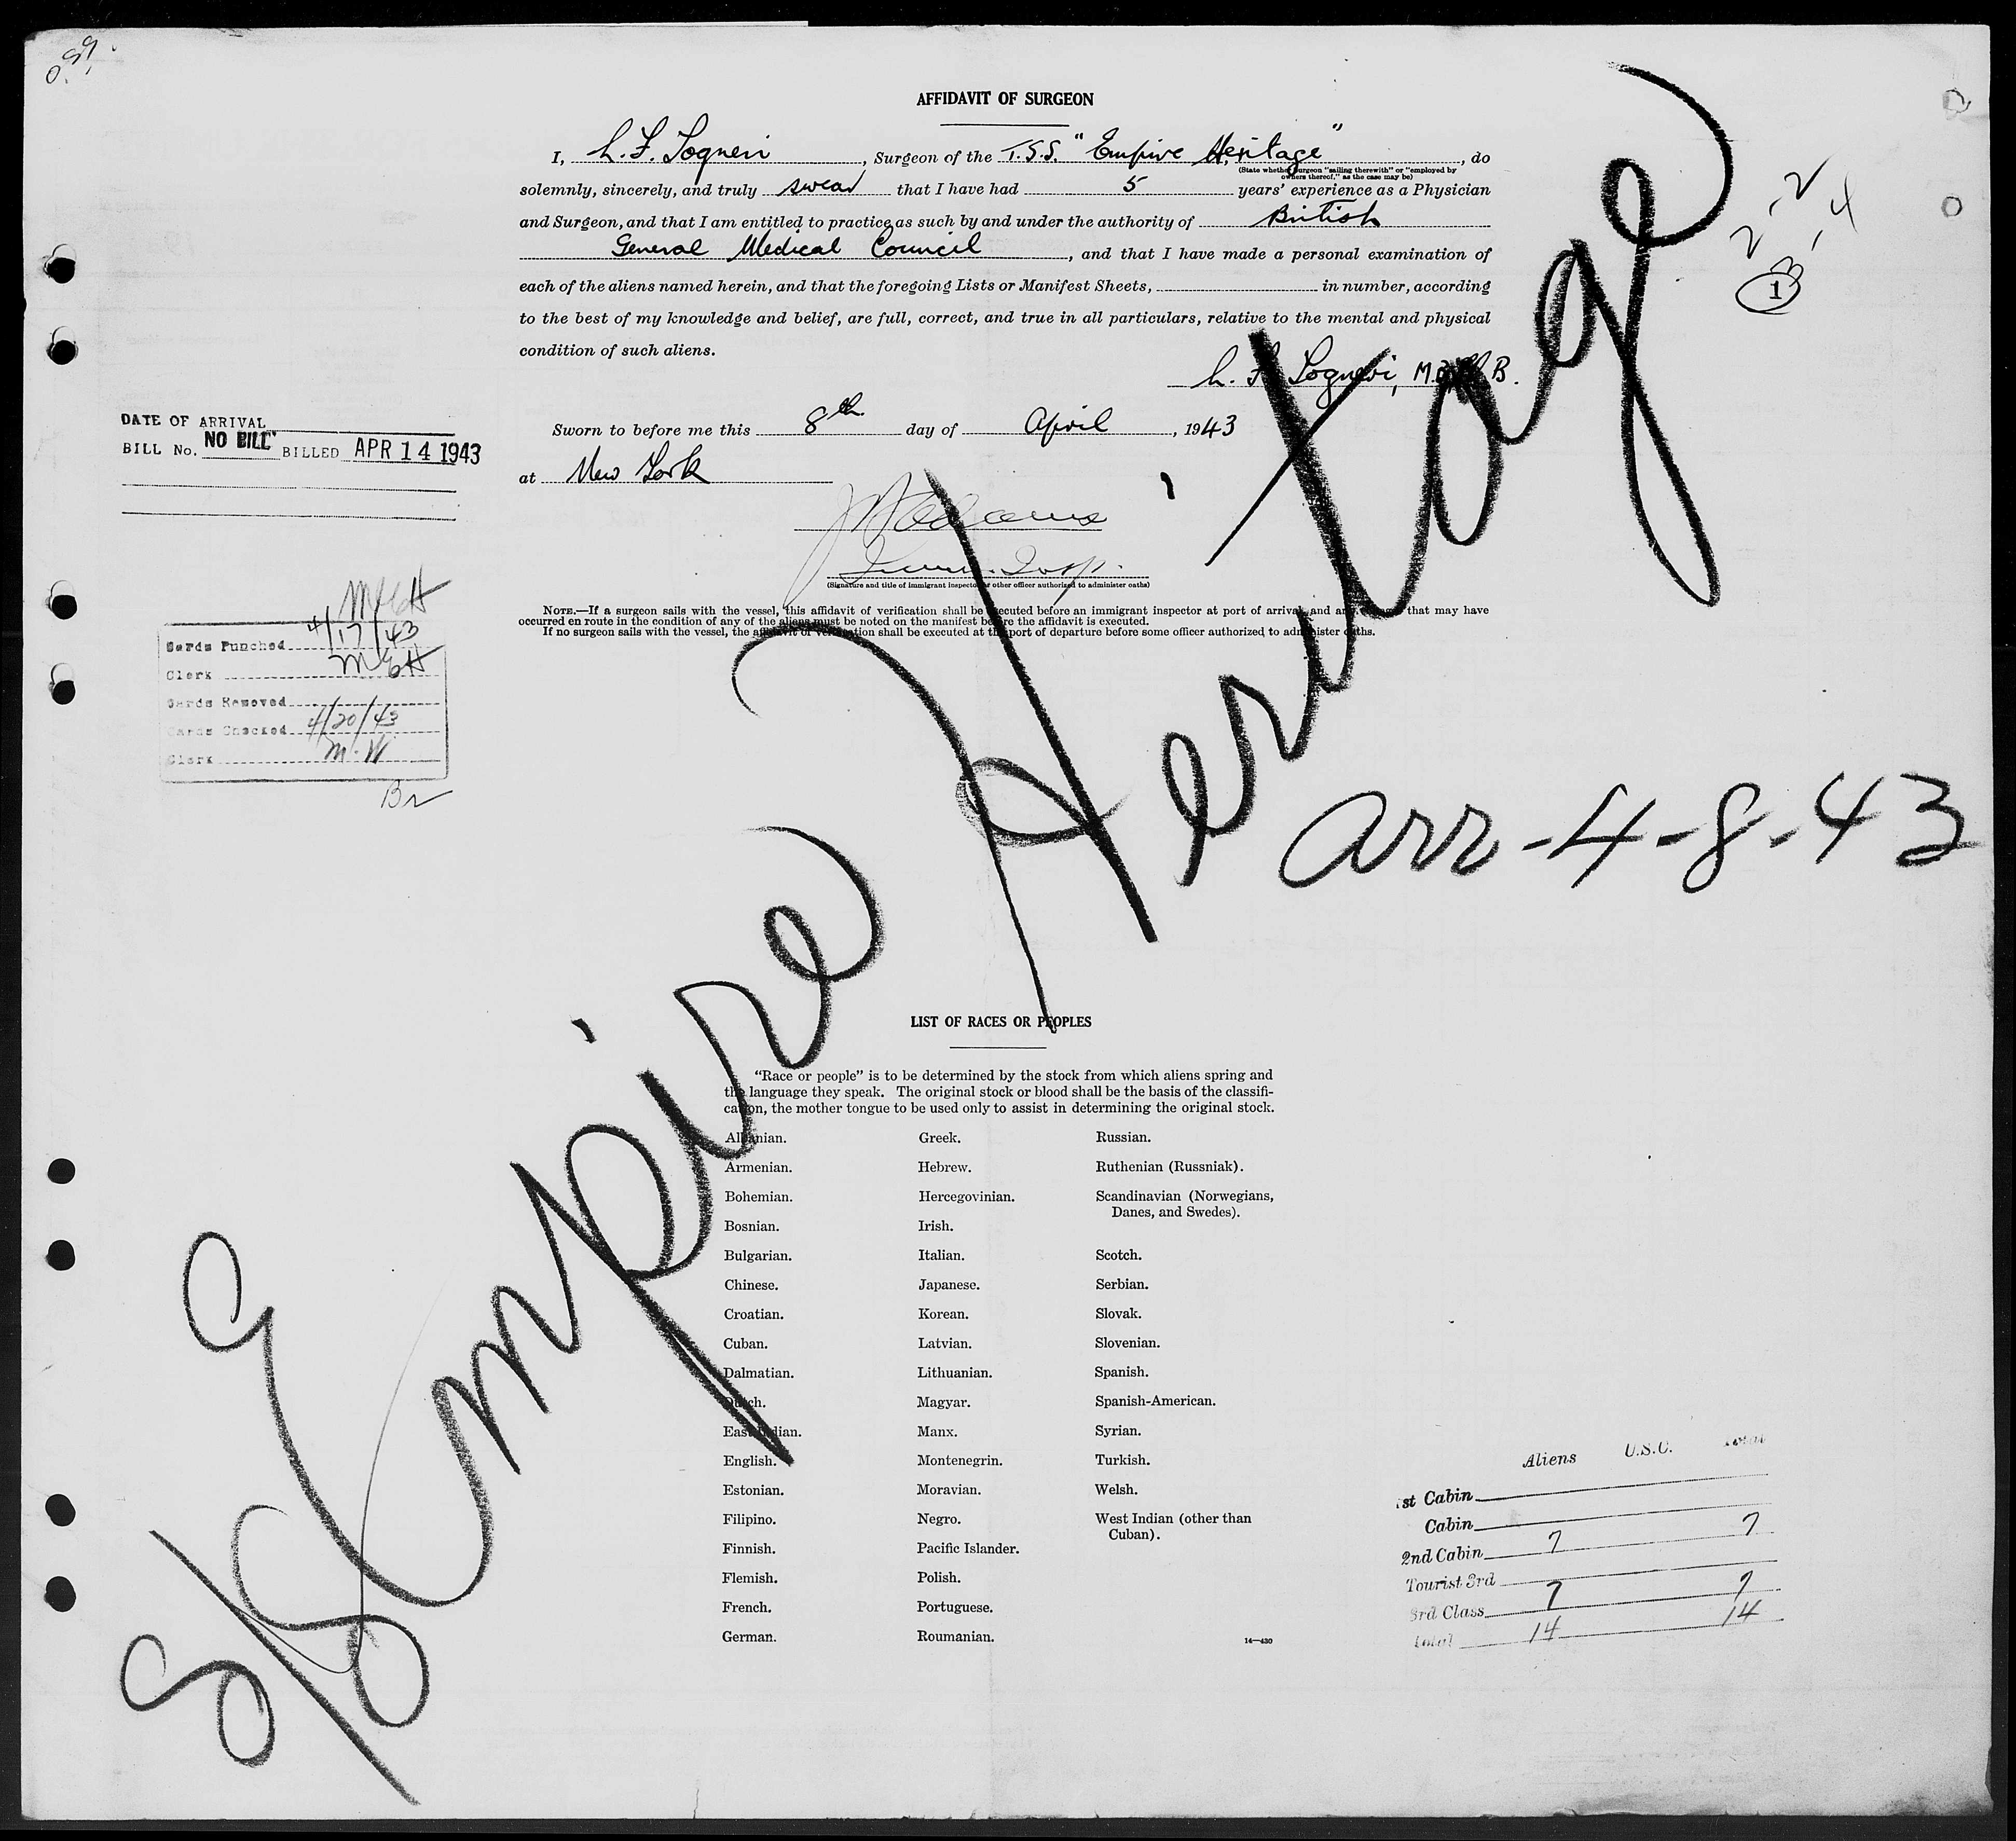 AFFIDAVIT OF SURGEON
I, L. F. Togneri, Surgeon of the T.S.S. "Empire Heritage", do
(State whether surgeon "sailing therewith" or "employed by
owners thereof," as the case may be)
solemnly, sincerely, and truly swear that I have had 5 years' experience as a Physician
and Surgeon, and that I am entitled to practice as such by and under the authority of British
General Medical Council, and that I have made a personal examination of
each of the aliens named herein, and that the foregoing Lists or Manifest Sheets, in number, according
to the best of my knowledge and belief, are full, correct, and true in all particulars, relative to the mental and physical
condition of such aliens.
L. F. Togneri, M.B. Ch. B.
Sworn to before me this 8th day of April, 1943
at New York
Immi. Insp.
(Signature and title of immigrant inspector or other officer authorized to administer oaths)
NOTE.—If a surgeon sails with the vessel, this affidavit of verification shall be executed before an immigrant inspector at port of arrival, and any changes that may have
occurred en route in the condition of any of the aliens must be noted on the manifest before the affidavit is executed.
If no surgeon sails with the vessel, the affidavit of verification shall be executed at the port of departure before some officer authorized to administer oaths.
2-2
3-4
1
DATE OF ARRIVAL
BILL No. NO BILL BILLED APR 14 1943
MEH
Cards Punched 4/17/43
Clerk MEH
Cards Removed
Cards Checked 4/20/43
Clerk M.W
S/S Empire Heritage
arr-4-8-43
LIST OF RACES OR PEOPLES
"Race or people" is to be determined by the stock from which aliens spring and
the language they speak. The original stock or blood shall be the basis of the classifi-
cation, the mother tongue to be used only to assist in determining the original stock.
Albanian. Greek. Russian.
Armenian. Hebrew. Ruthenian (Russniak).
Bohemian. Hercegovinian. Scandinavian (Norwegians,
Danes, and Swedes).
Bosnian. Irish.
Bulgarian. Italian. Scotch.
Chinese. Japanese. Serbian.
Croatian. Korean. Slovak.
Cuban. Latvian. Slovenian.
Dalmatian. Lithuanian. Spanish.
Dutch. Magyar. Spanish-American.
East Indian. Manx. Syrian.
English. Montenegrin. Turkish.
Estonian. Moravian. Welsh.
Filipino. Negro. West Indian (other than
Cuban).
Finnish. Pacific Islander.
Flemish. Polish.
French. Portuguese.
German. Roumanian.
14—430
Aliens U.S.C. Total
1st Cabin
Cabin
2nd Cabin 7 7
Tourist 3rd
3rd Class 7 7
Total 14 14